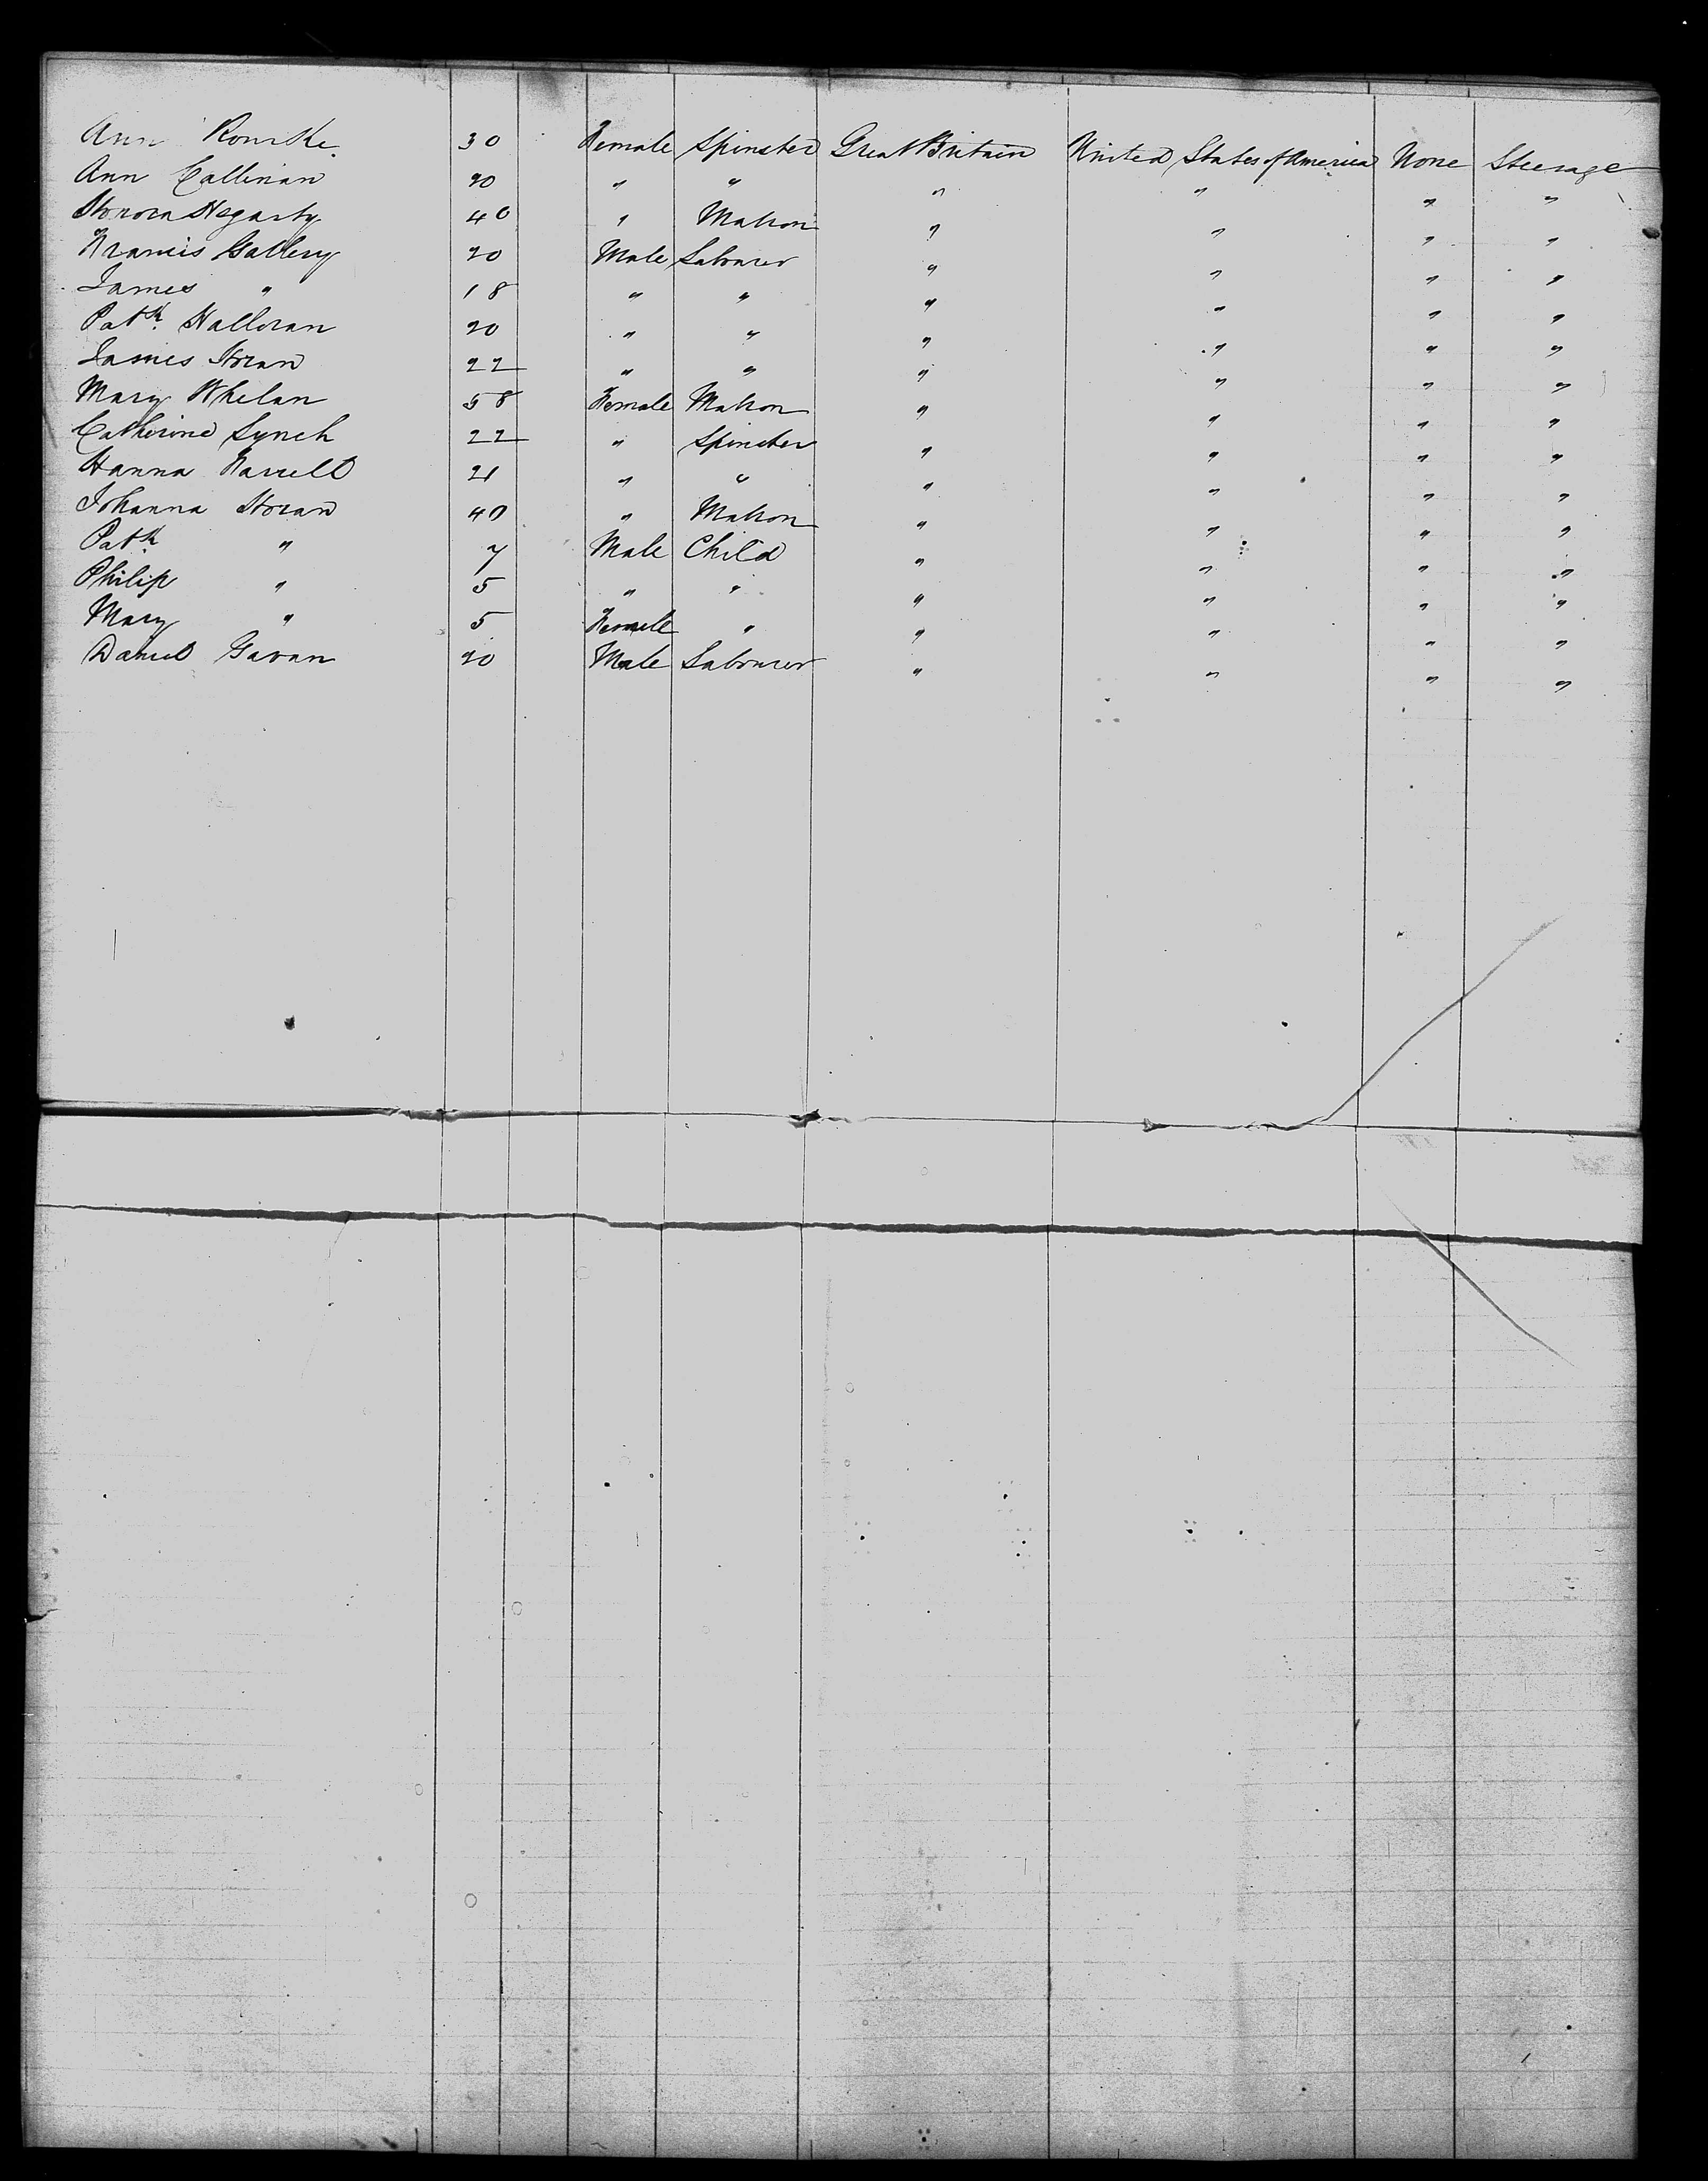 Ann Rourke 30 Female Spinster Great Britain United States of America None Steerage
Ann Callinan 20 " " " " " "
Honora Hegarty 40 " Matron " " " "
Francis Gallery 20 Male Labourer " " " "
James " 18 " " " " " "
Patk Halloran 20 " " " " " "
James Horan 22 " " " " " "
Mary Whelan 58 Female Matron " " " "
Catherine Lynch 22 " Spinster " " " "
Hanna Farrell 21 " " " " " "
Johanna Horan 40 " Matron " " " "
Patk " 7 Male Child " " " "
Philip " 5 " " " " " "
Mary " 5 Female " " " " "
Daniel Gavan 20 Male Labourer " " " "